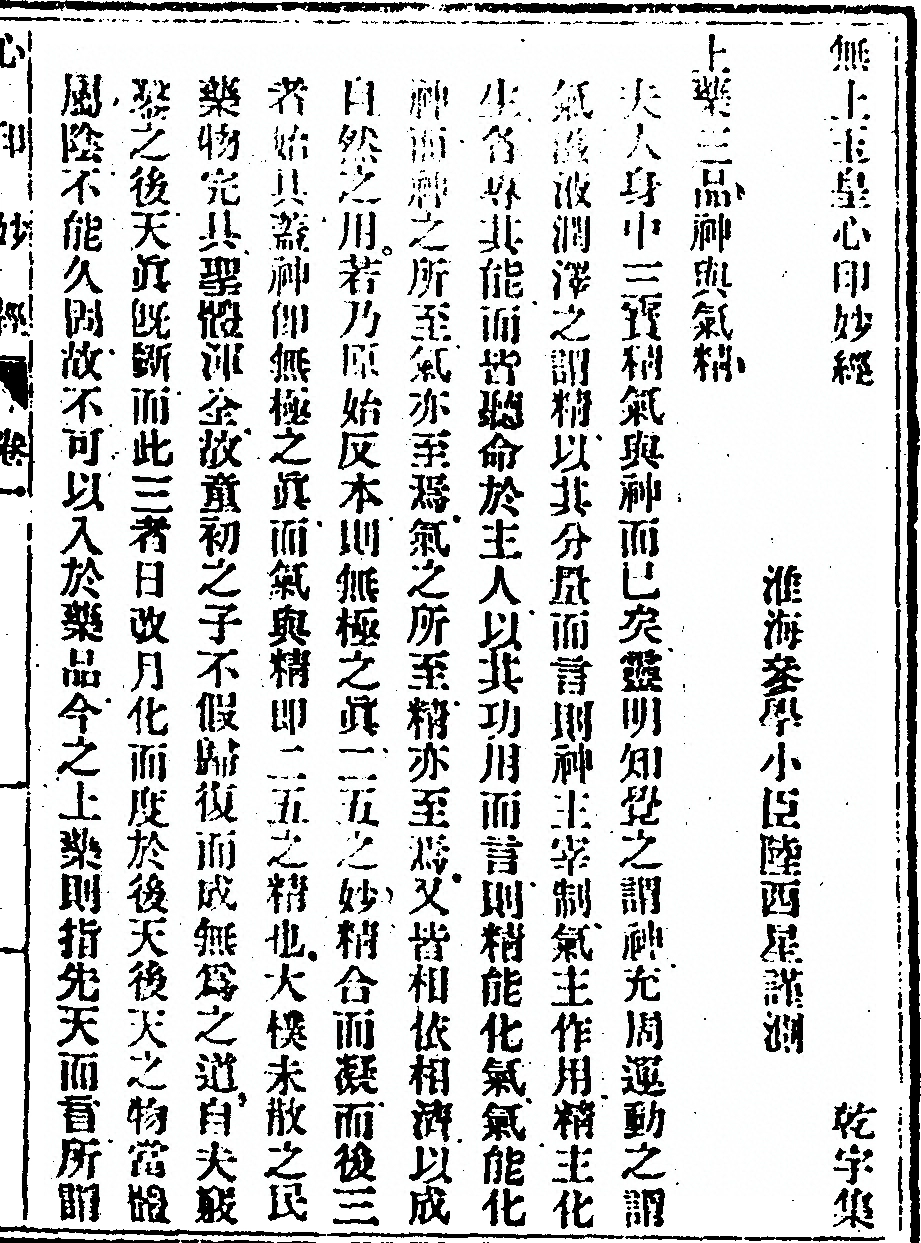 無上玉皇心印妙經 乾字集
淮海參學小臣陸西星謹測
上藥三品神與氣精
夫人身中三寳精氣與神而已矣靈明知覺之謂神充周運動之謂
氣滋液潤澤之謂精以其分量而言則神主宰制氣主作用精主化
生各專其能而皆聽命於主人以其功用而言則精能化氣氣能化
神而神之所至氣亦至焉氣之所至精亦至焉又皆相依相濟以成
自然之用。若乃原始反本則無極之眞二五之妙精合而凝而後三
者始具蓋神卽無極之眞而氣與精即二五之精也大樸未散之民
藥物完具聖體渾全故童初之子不假歸復而成無爲之道自夫竅
鑿之後天眞旣斵而此三者日改月化而度於後天後天之物當
屬陰不能久固故不可以入於藥品今之上藥則指先天而言所謂
心印妙經 卷一